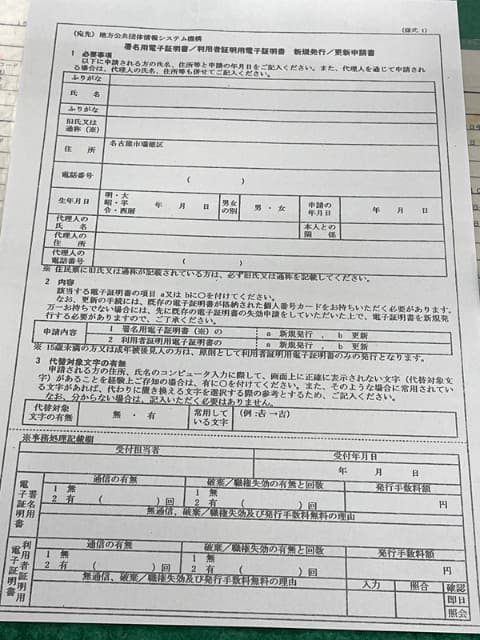 (様式1)
(宛先) 地方公共団体情報システム機構
署名用電子証明書/利用者証明用電子証明書 新規発行/更新申請書
1 必要事項
以下に申請される方の氏名、住所等と申請の年月日をご記入ください。また、代理人を通じて申請され
る場合は、代理人の氏名、住所等も併せてご記入ください。
ふりがな
氏 名
ふりがな
旧氏又は
通称(※)
住 所 名古屋市瑞穂区
電話番号 ( )
生年月日 明・大 昭・平 令・西暦 年 月 日 男女の別 男・女 申請の年月日 年 月 日
代理人の氏名 本人との関係
代理人の住所
代理人の電話番号 ( )
※ 住民票に旧氏又は通称が記載されている方は、必ず旧氏又は通称を記載してください。
2 内容
該当する電子証明書の項目 a又は bに○を付けてください。
なお、更新の手続には、既存の電子証明書が格納された個人番号カードをお持ちいただく必要があります。
万一お持ちでない場合には、先に既存の電子証明書の失効申請をしていただいた上で、電子証明書を新規発
行する必要がありますので、ご了承ください。
申請内容 1 署名用電子証明書(※) a 新規発行 , b 更新
2 利用者証明用電子証明書の a 新規発行 , b 更新
※ 15歳未満の方又は成年被後見人の方は、原則として利用者証明用電子証明書のみの発行となります。
3 代替対象文字の有無
申請される方の住所、氏名のコンピュータ入力に際して、画面上に正確に表示されない文字(代替対象文
字)があることを経験上ご存知の場合は、有に○を付けてください。また、そのような場合に常用されてい
る文字があれば、代わりに置き換える文字を選択する際の参考とするため、ご記入ください。
なお、分からない場合は、記入いただく必要はありません。
代替対象文字の有無 無 ・ 有 常用している文字 (例:𠮷→吉)
※事務処理記載欄
受付担当者 受付年月日
年 月 日
署名用電子証明書
通信の有無 破棄/職権失効の有無と回数 発行手数料額
1 無 1 無
2 有 ( )回 2 有 ( )回 円
無通信、破棄/職権失効及び発行手数料無料の理由
利用者証明用電子証明書
通信の有無 破棄/職権失効の有無と回数 発行手数料額
1 無 1 無
2 有 ( )回 2 有 ( )回 円
無通信、破棄/職権失効及び発行手数料無料の理由 入力 照合 確認
即日
照会